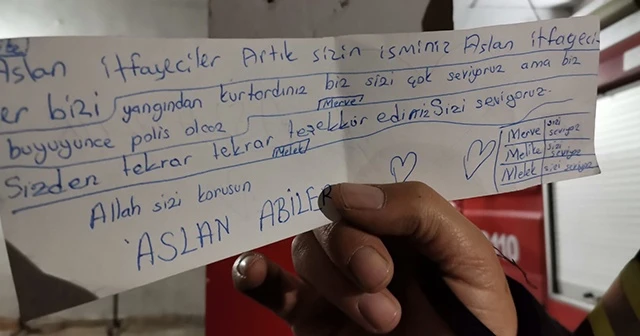 Aslan itfaγeciler Artık sizin isminiz Aslan itfaγeci-
er bizi yangından kurtordınız biz sizi çok seviyoruz ama biz
büyüyünce polis olcoz Merve
Sizden tekrar tekrar teşekkür ediniz Sizi seviyoruz.
Melek
Allah sizi korusun
ASLAN ABİLER
Merve sizi seviyoz
Melike sizi seviyoz
Melek sizi seviyoz
110